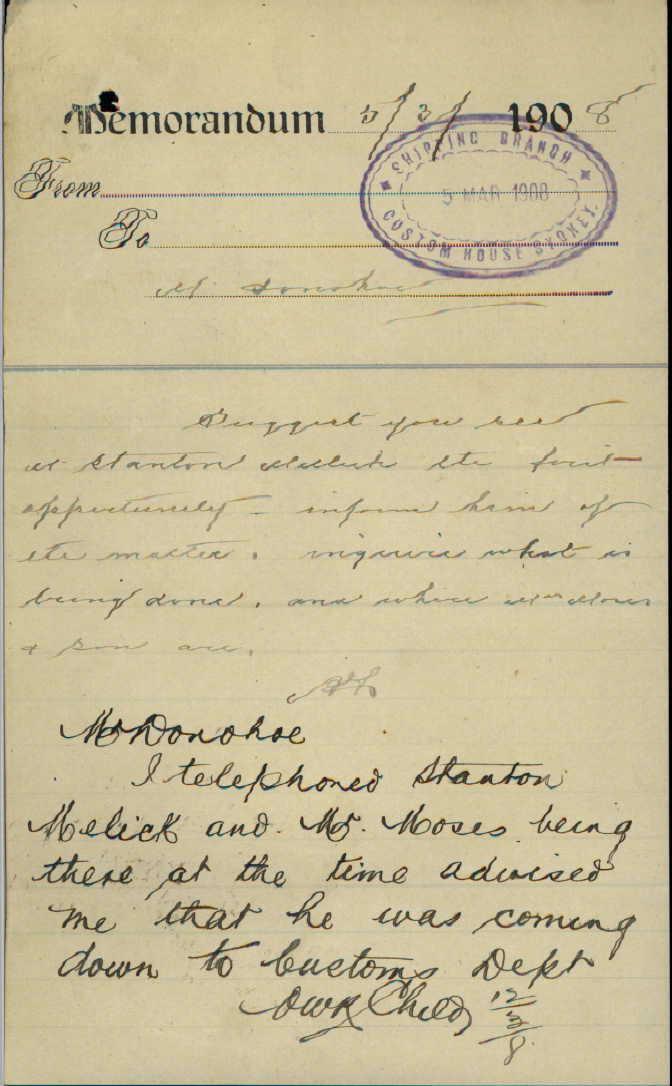 Memorandum 5/3/ 1908
SHIPPING BRANCH
5 MAR 1908
CUSTOM HOUSE SYDNEY.
From
To
Mr Donohoe
Suggest you see
Mr Stanton Melick the first
opportunity - inform him of
the matter. inquire what is
being done. and where Mrs Moses
& son are.
Mr Donohoe
I telephoned Stanton
Melick and Mr. Moses being
there at the time advised
me that he was coming
down to Customs Dept
Child